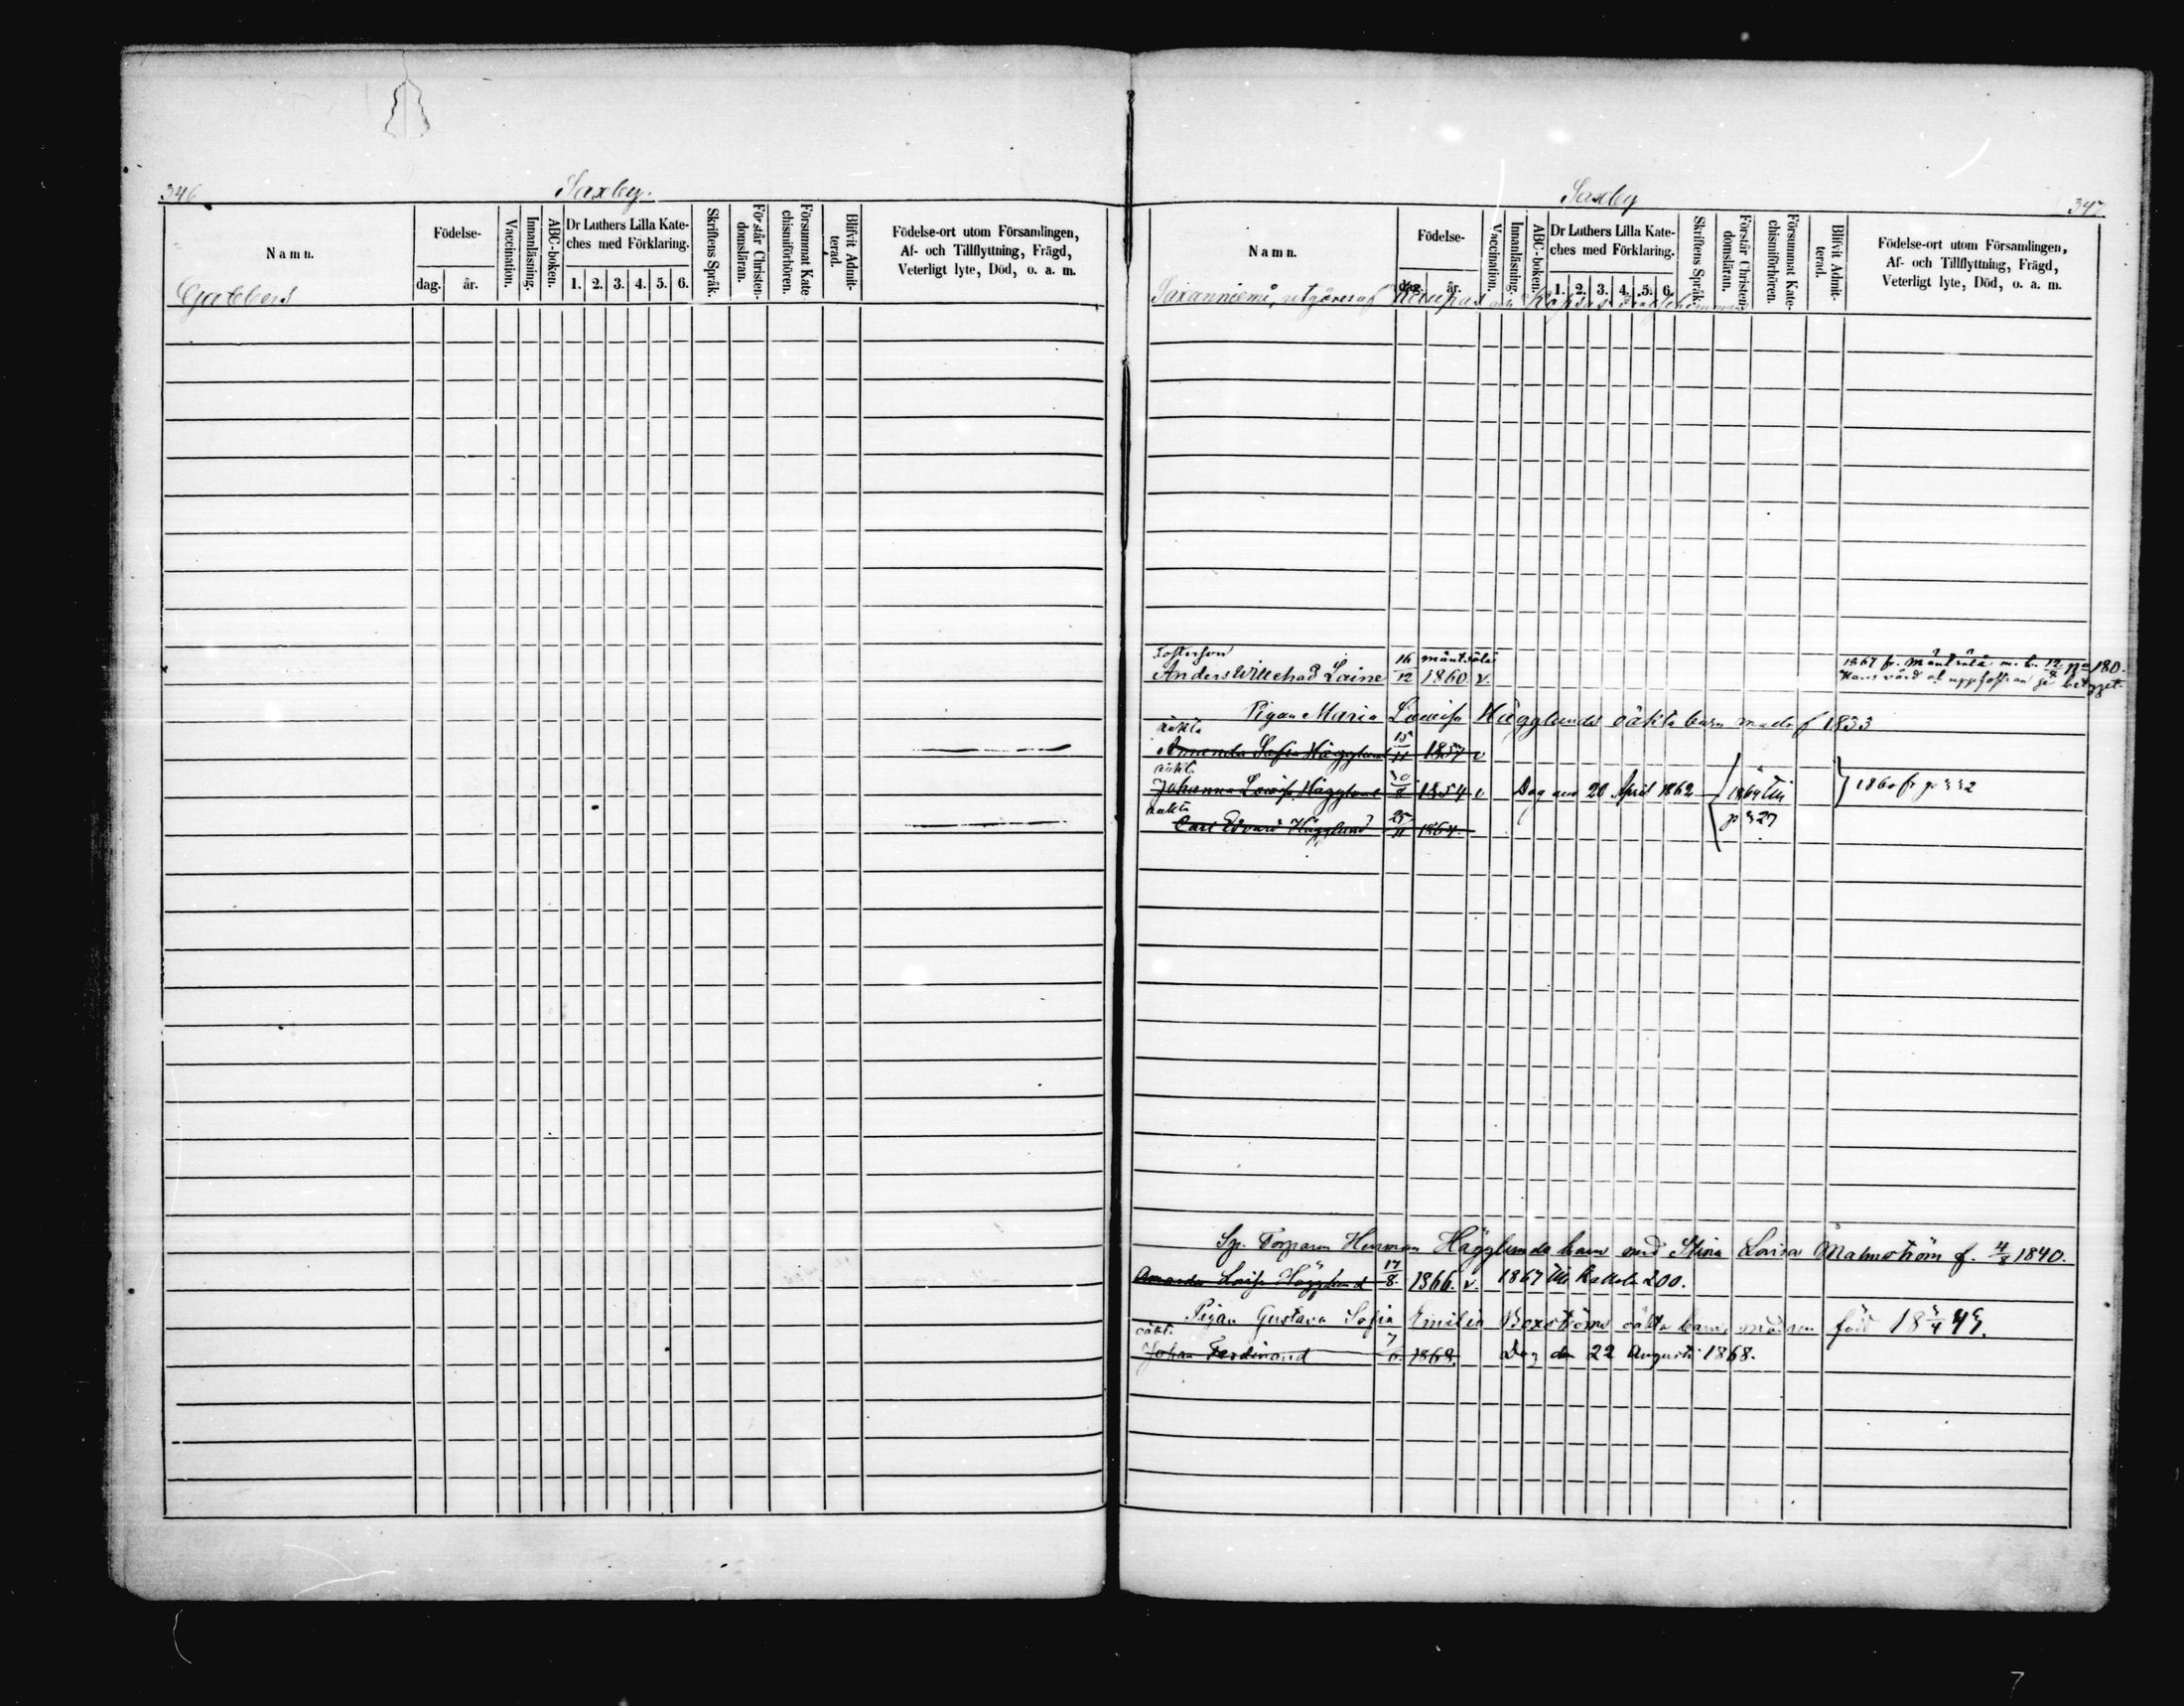 346
Saxby.
Namn.
Födelse-
dag. år.
Vaccination.
Innanläsning.
ABC-boken.
Dr Luthers Lilla Kate-
ches med Förklaring.
1. 2. 3. 4. 5. 6.
Skriftens Språk.
Förstår Christen-
domsläran.
Försummat Kate
chismiförhören.
Blifvit Admit-
terad.
Födelse-ort utom Församlingen,
Af- och Tillflyttning, Frägd,
Veterligt lyte, Död, o. a. m.
Gabbers
Saxby
347
Namn.
Födelse-
dag. år.
Vaccination.
Innanläsning.
ABC-boken.
Dr Luthers Lilla Kate-
ches med Förklaring.
1. 2. 3. 4. 5. 6.
Skriftens Språk.
Förstår Christen-
domsläran.
Försummat Kate-
chismiförhören.
Blifvit Admit-
terad.
Födelse-ort utom Församlingen,
Af- och Tillflyttning, Frägd,
Veterligt lyte, Död, o. a. m.
Saxanniemi, utgöres af och
Fosterson 16 mäntsälä 1867 fr. Mäntsälä m. b. 180.
Anders Willehad Laine 12 1860. v.
Pigan Maria Lovisa Hägglunds oäkta barn modr f 1833
oäkta 15
Amanda Sofia Hägglund 11 1857 v
oäkta
Johanna Lovisa Hägglund 8 1854 v Dog den 20 April 1862 1864 till 1860 fr p 332
oäkta 25 p 327
Carl Edvard Hägglund 11 1864.
Sp. Torparen Herman Hägglunds barn med Stina Lovisa Malmström f. 4/8 1840.
Amanda Lovisa Hägglund 17/8. 1866. v. 1867 till 200.
Pigan Gustava Sofia Emilia Boxströms oäkta barn, modren född
oäkta 7
Johan Ferdinand 6. 1868. Dog den 22 Augusti 1868.